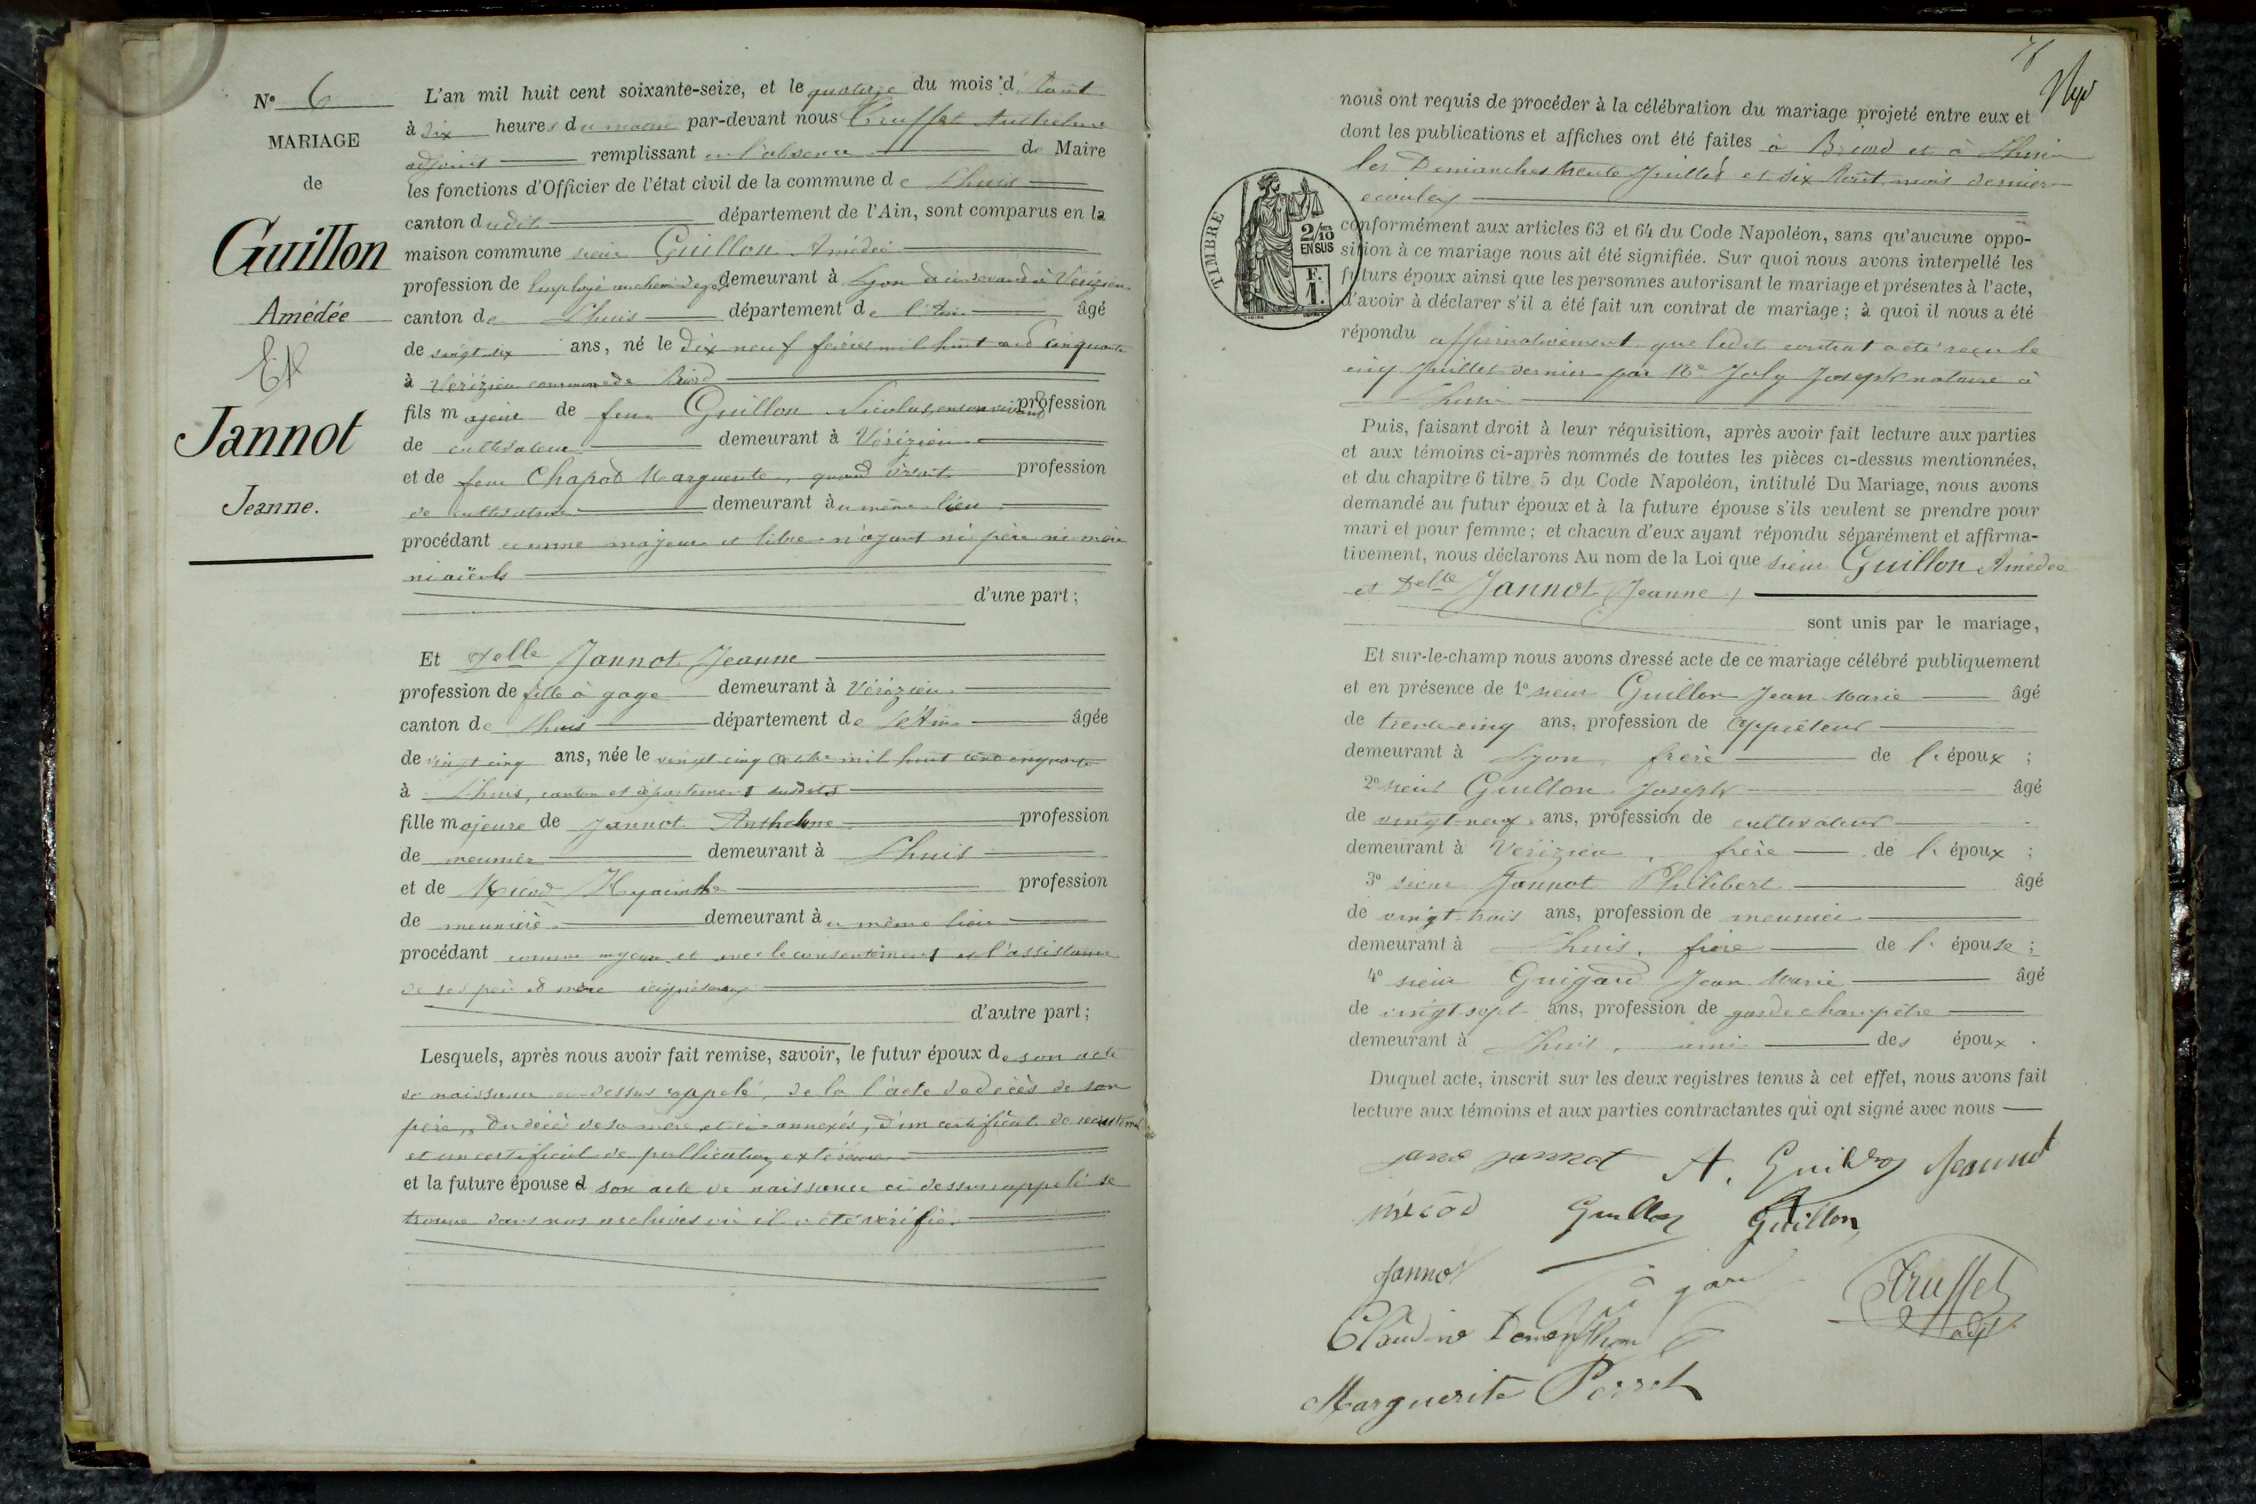 N° 6
MARIAGE
de
Guillon
Amédée
Et
Jannot
Jeanne.
L'an mil huit cent soixante-seize, et le quatorze du mois d'Août
à dix heures du matin par-devant nous Truffet Anthelme
adjoint remplissant en l'absence de Maire
les fonctions d'Officier de l'état civil de la commune de Lhuis
canton dudit département de l'Ain, sont comparus en la
maison commune sieur Guillon Amédée
profession de Employé au chemin de demeurant à Lyon Vérizieu
canton de Lhuis département de l'Ain âgé
de vingt six ans, né le dix neuf février mil huit cent cinquante
à Vérizieu commune de Briord
fils majeur de feu Guillon Nicolas, en son vivant profession
de cultivateur demeurant à Vérizieu
et de feue Chapot Marguerite, quand vivait profession
de cultivatrice demeurant au même lieu
procédant comme majeur et libre n'ayant ni père ni mère
ni aïeuls
d'une part;
Et Delle Jannot Jeanne
profession de fille à gage demeurant à Vérizieu
canton de Lhuis département de l'Ain âgée
de vingt cinq ans, née le vingt cinq octobre mil huit cent cinquante
à Lhuis, canton et département susdits
fille majeure de Jannot Anthelme profession
de meunier demeurant à Lhuis
et de Micod Hyacinthe profession
de meunière demeurant au même lieu
procédant comme majeure et avec le consentement et l'assistance
de ses père et mère ici présents
d'autre part;
Lesquels, après nous avoir fait remise, savoir, le futur époux de son acte
de naissance ci-dessus rappelé, de la l'acte de décès de son
père, du décès de sa mère et ci-annexés, d'un certificat de recrutement
et un certificat de publication extérieure
et la future épouse d son acte de naissance ci dessus rappelé se
trouve dans nos archives où il a été vérifié.
76
nous ont requis de procéder à la célébration du mariage projeté entre eux et
dont les publications et affiches ont été faites à Briord et à Lhuis
les Dimanches trente Juillet et six Août mois dernier
écoulés
TIMBRE
2/10
EN SUS
F.
1.
conformément aux articles 63 et 64 du Code Napoléon, sans qu'aucune oppo-
sition à ce mariage nous ait été signifiée. Sur quoi nous avons interpellé les
futurs époux ainsi que les personnes autorisant le mariage et présentes à l'acte,
d'avoir à déclarer s'il a été fait un contrat de mariage; à quoi il nous a été
répondu affirmativement que ledit contrat a été reçu le
cinq Juillet dernier par Me Joly Joseph notaire à
Lhuis
Puis, faisant droit à leur réquisition, après avoir fait lecture aux parties
et aux témoins ci-après nommés de toutes les pièces ci-dessus mentionnées,
et du chapitre 6 titre 5 du Code Napoléon, intitulé Du Mariage, nous avons
demandé au futur époux et à la future épouse s'ils veulent se prendre pour
mari et pour femme; et chacun d'eux ayant répondu séparément et affirma-
tivement, nous déclarons Au nom de la Loi que sieur Guillon Amédée
et Delle Jannot (Jeanne)
sont unis par le mariage,
Et sur-le-champ nous avons dressé acte de ce mariage célébré publiquement
et en présence de 1° sieur Guillon Jean Marie âgé
de trente-cinq ans, profession de Apprêteur
demeurant à Lyon, frère de l'époux;
2° sieur Guillon Joseph âgé
de vingt-neuf ans, profession de cultivateur
demeurant à Vérizieu, frère de l'époux;
3° sieur Jannot Philibert âgé
de vingt-trois ans, profession de meunier
demeurant à Lhuis, frère de l'épouse;
4° sieur Guigard Jean Marie âgé
de vingt-sept ans, profession de garde champêtre
demeurant à Lhuis, ami des époux.
Duquel acte, inscrit sur les deux registres tenus à cet effet, nous avons fait
lecture aux témoins et aux parties contractantes qui ont signé avec nous
jannot A. Guillon Jeannot
micod Guillon Guillon
Jannot
Truffet
adjt
Claudine
Marguerite Perret